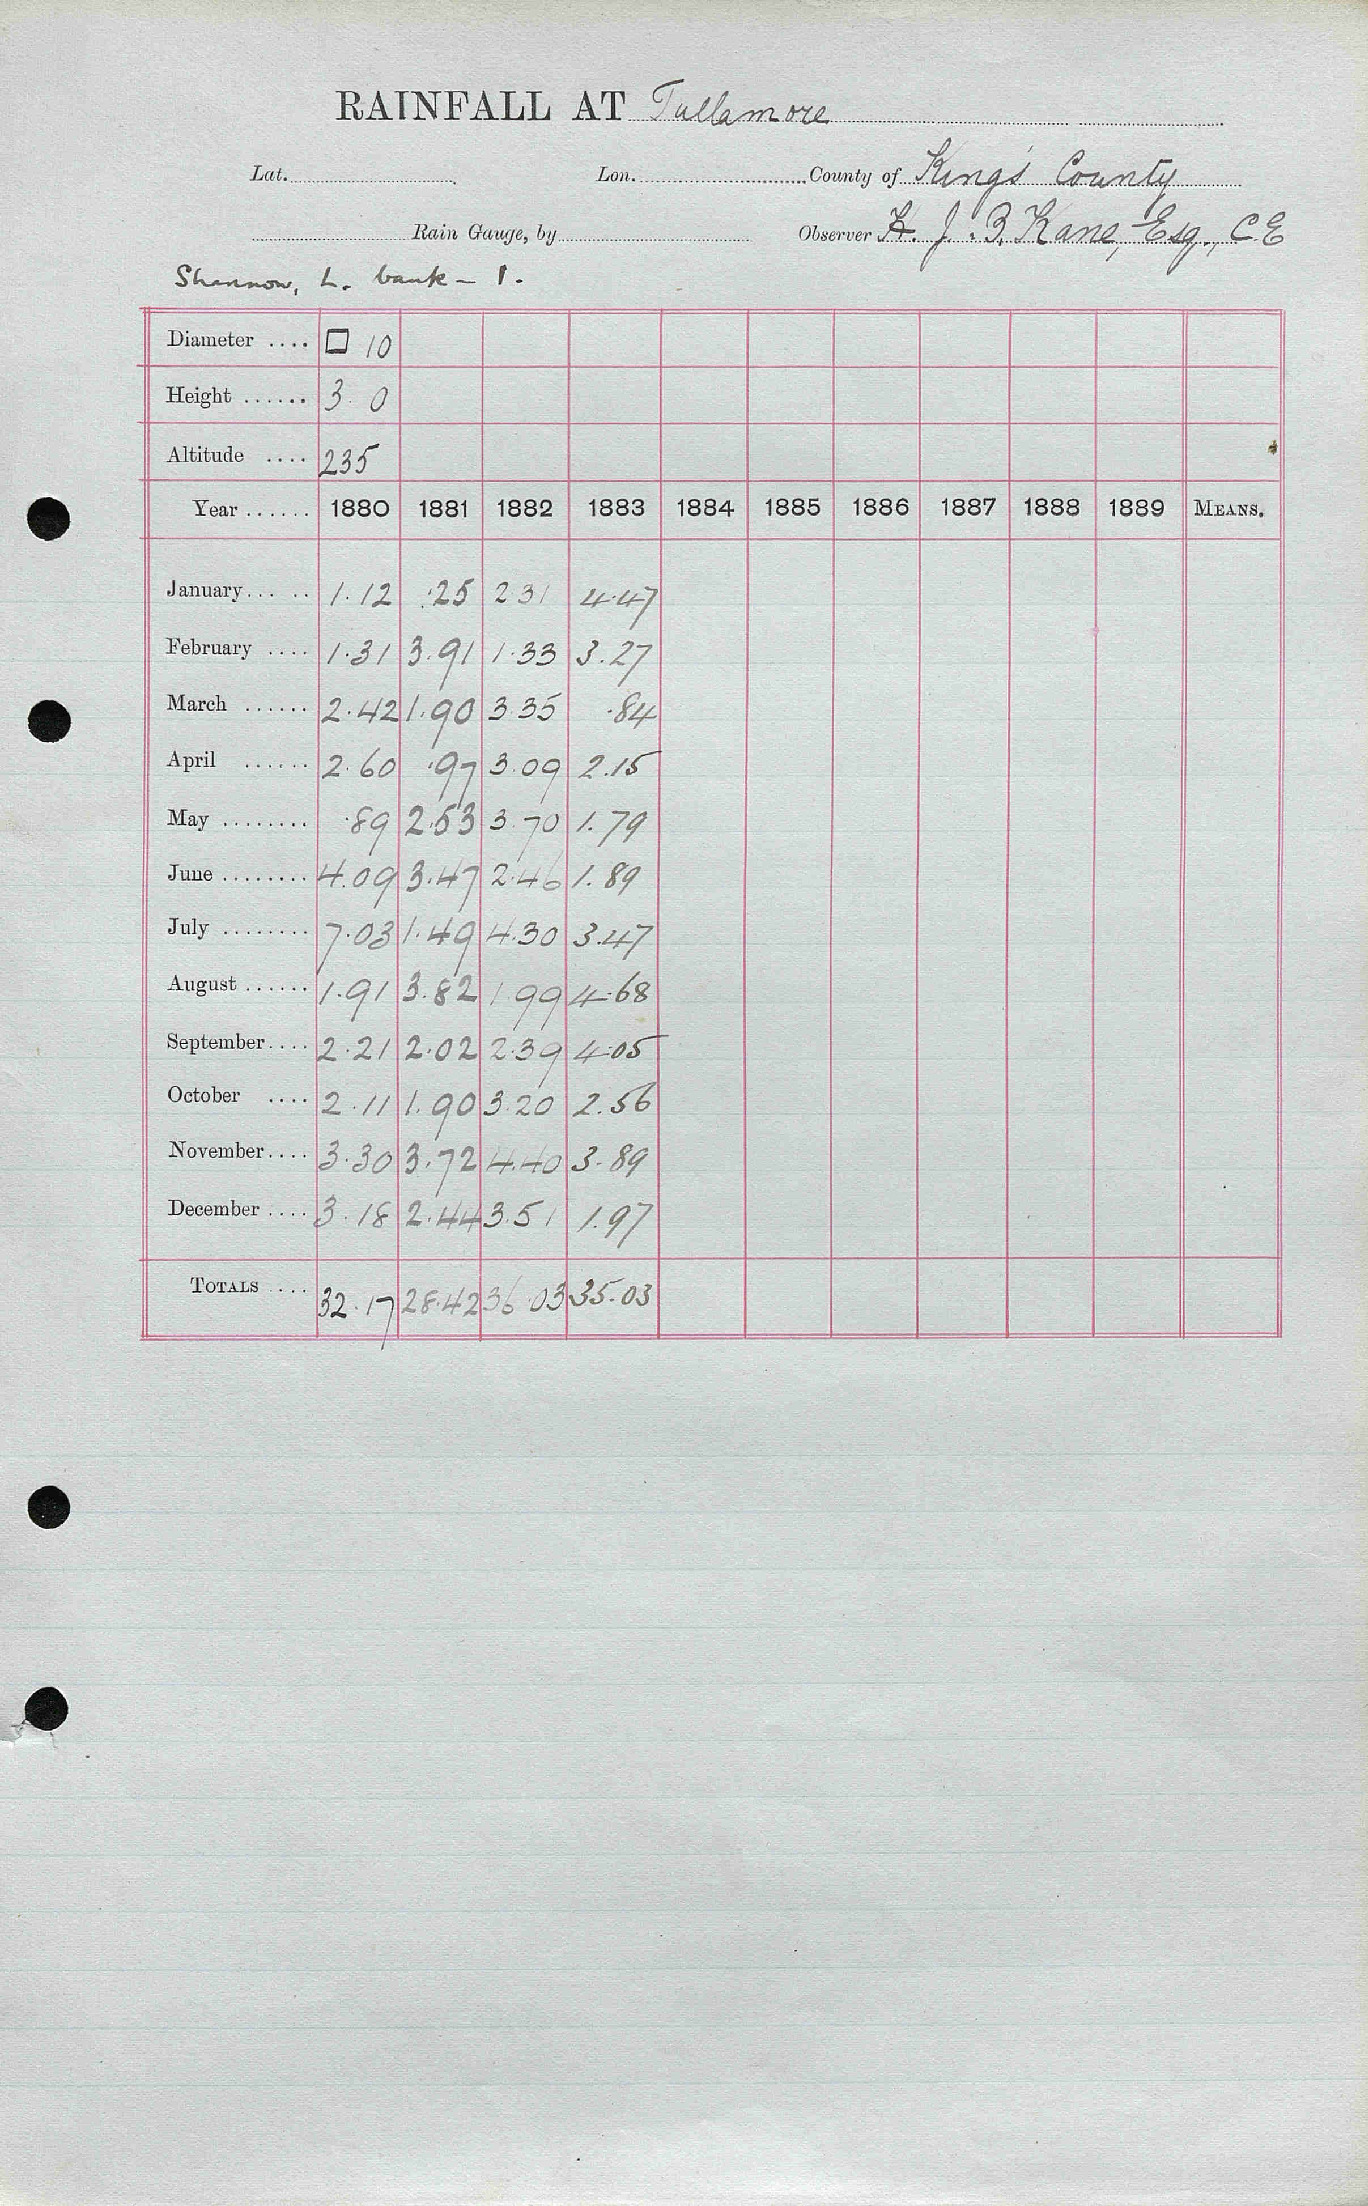 RAINFALL AT Tullamore
Lat. Lon. County of King's County
Rain Gauge, by Observer H. J. B. Kane, Esq., C.E
Shannon, L. bank - 1.
Diameter .... □ 10
Height ...... 3 0
Altitude .... 235
Year ...... 1880 1881 1882 1883 1884 1885 1886 1887 1888 1889 MEANS.
January... .. 1.12 .25 2 31 4.47
February .... 1.31 3.91 1.33 3.27
March ...... 2.42 1.90 3.35 .84
April ...... 2.60 .97 3.09 2.15
May ........ .89 2.53 3.70 1.79
June ........ 4.09 3.47 2.46 1.89
July ........ 7.03 1.49 4.30 3.47
August ...... 1.91 3.82 1.99 4.68
September.... 2.21 2.02 2.39 4.05
October .... 2.11 1.90 3.20 2.56
November.... 3.30 3.72 4.40 3.89
December .... 3.18 2.44 3.51 1.97
TOTALS .... 32.17 28.42 36.03 35.03